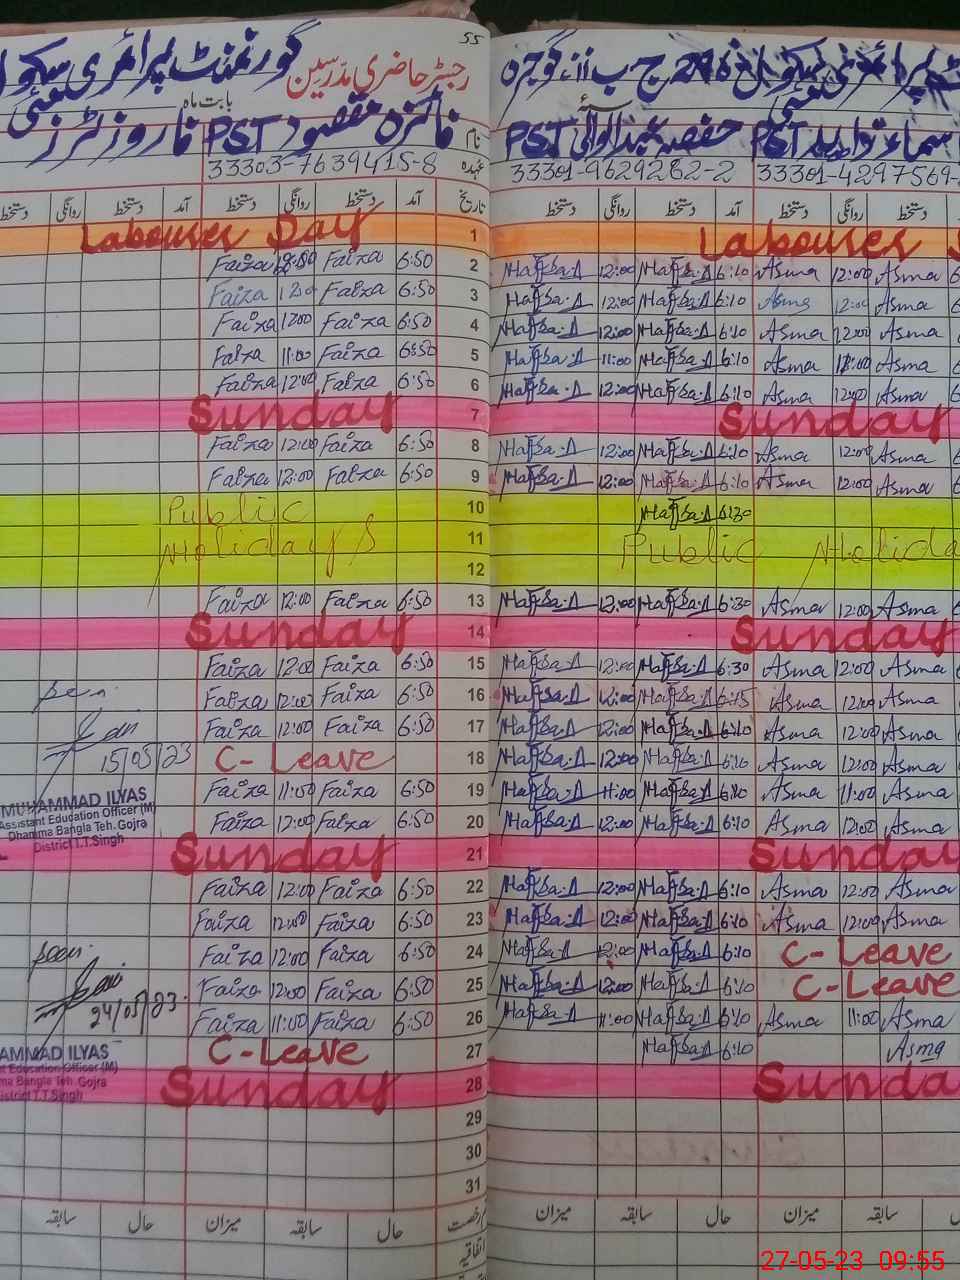 55
گورنمنٹ پرائمری سکول
رجسٹر حاضری مدرسین
بابت ماہ
نام فائزہ مقصود PST
عہدہ 33303-7639415-8
تاریخ آمد دستخط روانگی دستخط آمد دستخط روانگی دستخط
1 Labourse Day
2 6:50 Faiza 12:00 Faiza
3 6:50 Faiza 12:0 Faiza
4 6:50 Faiza 1200 Faiza
5 6:50 Faiza 11:00 Faiza
6 6:50 Faiza 12:00 Faiza
7 Sunday
8 6:50 Faiza 12:00 Faiza
9 6:50 Faiza 12:00 Faiza
10 Public
11 Holidays
12
13 6:50 Faiza 12:00 Faiza
14 Sunday
15 6:50 Faiza 12:00 Faiza
16 6:50 Faiza 12:00 Faiza
17 6:50 Faiza 12:00 Faiza
18 C-Leave
19 6:50 Faiza 11:00 Faiza
20 6:50 Faiza 12:00 Faiza
21 Sunday
22 6:50 Faiza 12:00 Faiza
23 6:50 Faiza 12:00 Faiza
24 6:50 Faiza 12:00 Faiza
25 6:50 Faiza 12:00 Faiza
26 6:50 Faiza 11:00 Faiza
27 C-Leave
28 Sunday
29
30
31
حال سابقہ میزان حال سابقہ
اتفاقیہ
15/05/23
MUHAMMAD ILYAS
Assistant Education Officer (M)
Dhamma Bangla Teh. Gojra
District T.T.Singh
seen
24/05/23
AMMAD ILYAS
t Education Officer (M)
ma Bangla Teh. Gojra
istrict T.T.Singh
PST
33301-9629282-2 33301-4297569-
آمد دستخط روانگی دستخط
دستخط روانگی دستخط
Labourse
6:10 Hafsa.A 12:00 Hafsa.A Asma 12:00 Asma
6:10 Hafsa.A 12:00 Hafsa.A Asma 12:00 Asma
6:10 Hafsa.A 12:00 Hafsa.A Asma 12:00 Asma
6:10 Hafsa.A 11:00 Hafsa.A Asma 11:00 Asma
6:10 Hafsa.A 12:00 Hafsa.A Asma 12:00 Asma
Sunday
6:10 Hafsa.A 12:00 Hafsa.A Asma 12:00 Asma
6:10 Hafsa.A 12:00 Hafsa.A Asma 12:00 Asma
6:30 Hafsa.A
Public Holida
6:30 Hafsa.A 12:00 Hafsa.A Asma 12:00 Asma
Sunday
6:30 Hafsa.A 12:00 Hafsa.A Asma 12:00 Asma
6:15 Hafsa.A 12:00 Hafsa.A Asma 12:00 Asma
6:10 Hafsa.A 12:00 Hafsa.A Asma 12:00 Asma
6:10 Hafsa.A 12:00 Hafsa.A Asma 12:00 Asma
6:10 Hafsa.A 11:00 Hafsa.A Asma 11:00 Asma
6:10 Hafsa.A 12:00 Hafsa.A Asma 12:00 Asma
Sunday
6:10 Hafsa.A 12:00 Hafsa.A Asma 12:00 Asma
6:10 Hafsa.A 12:00 Hafsa.A Asma 12:00 Asma
6:10 Hafsa.A 12:00 Hafsa.A C-Leave
6:10 Hafsa.A 12:00 Hafsa.A C-Leave
6:10 Hafsa.A 11:00 Hafsa.A Asma 11:00 Asma
6:10 Hafsa.A Asma
Sunda
حال سابقہ میزان
سابقہ میزان
27-05-23 09:55